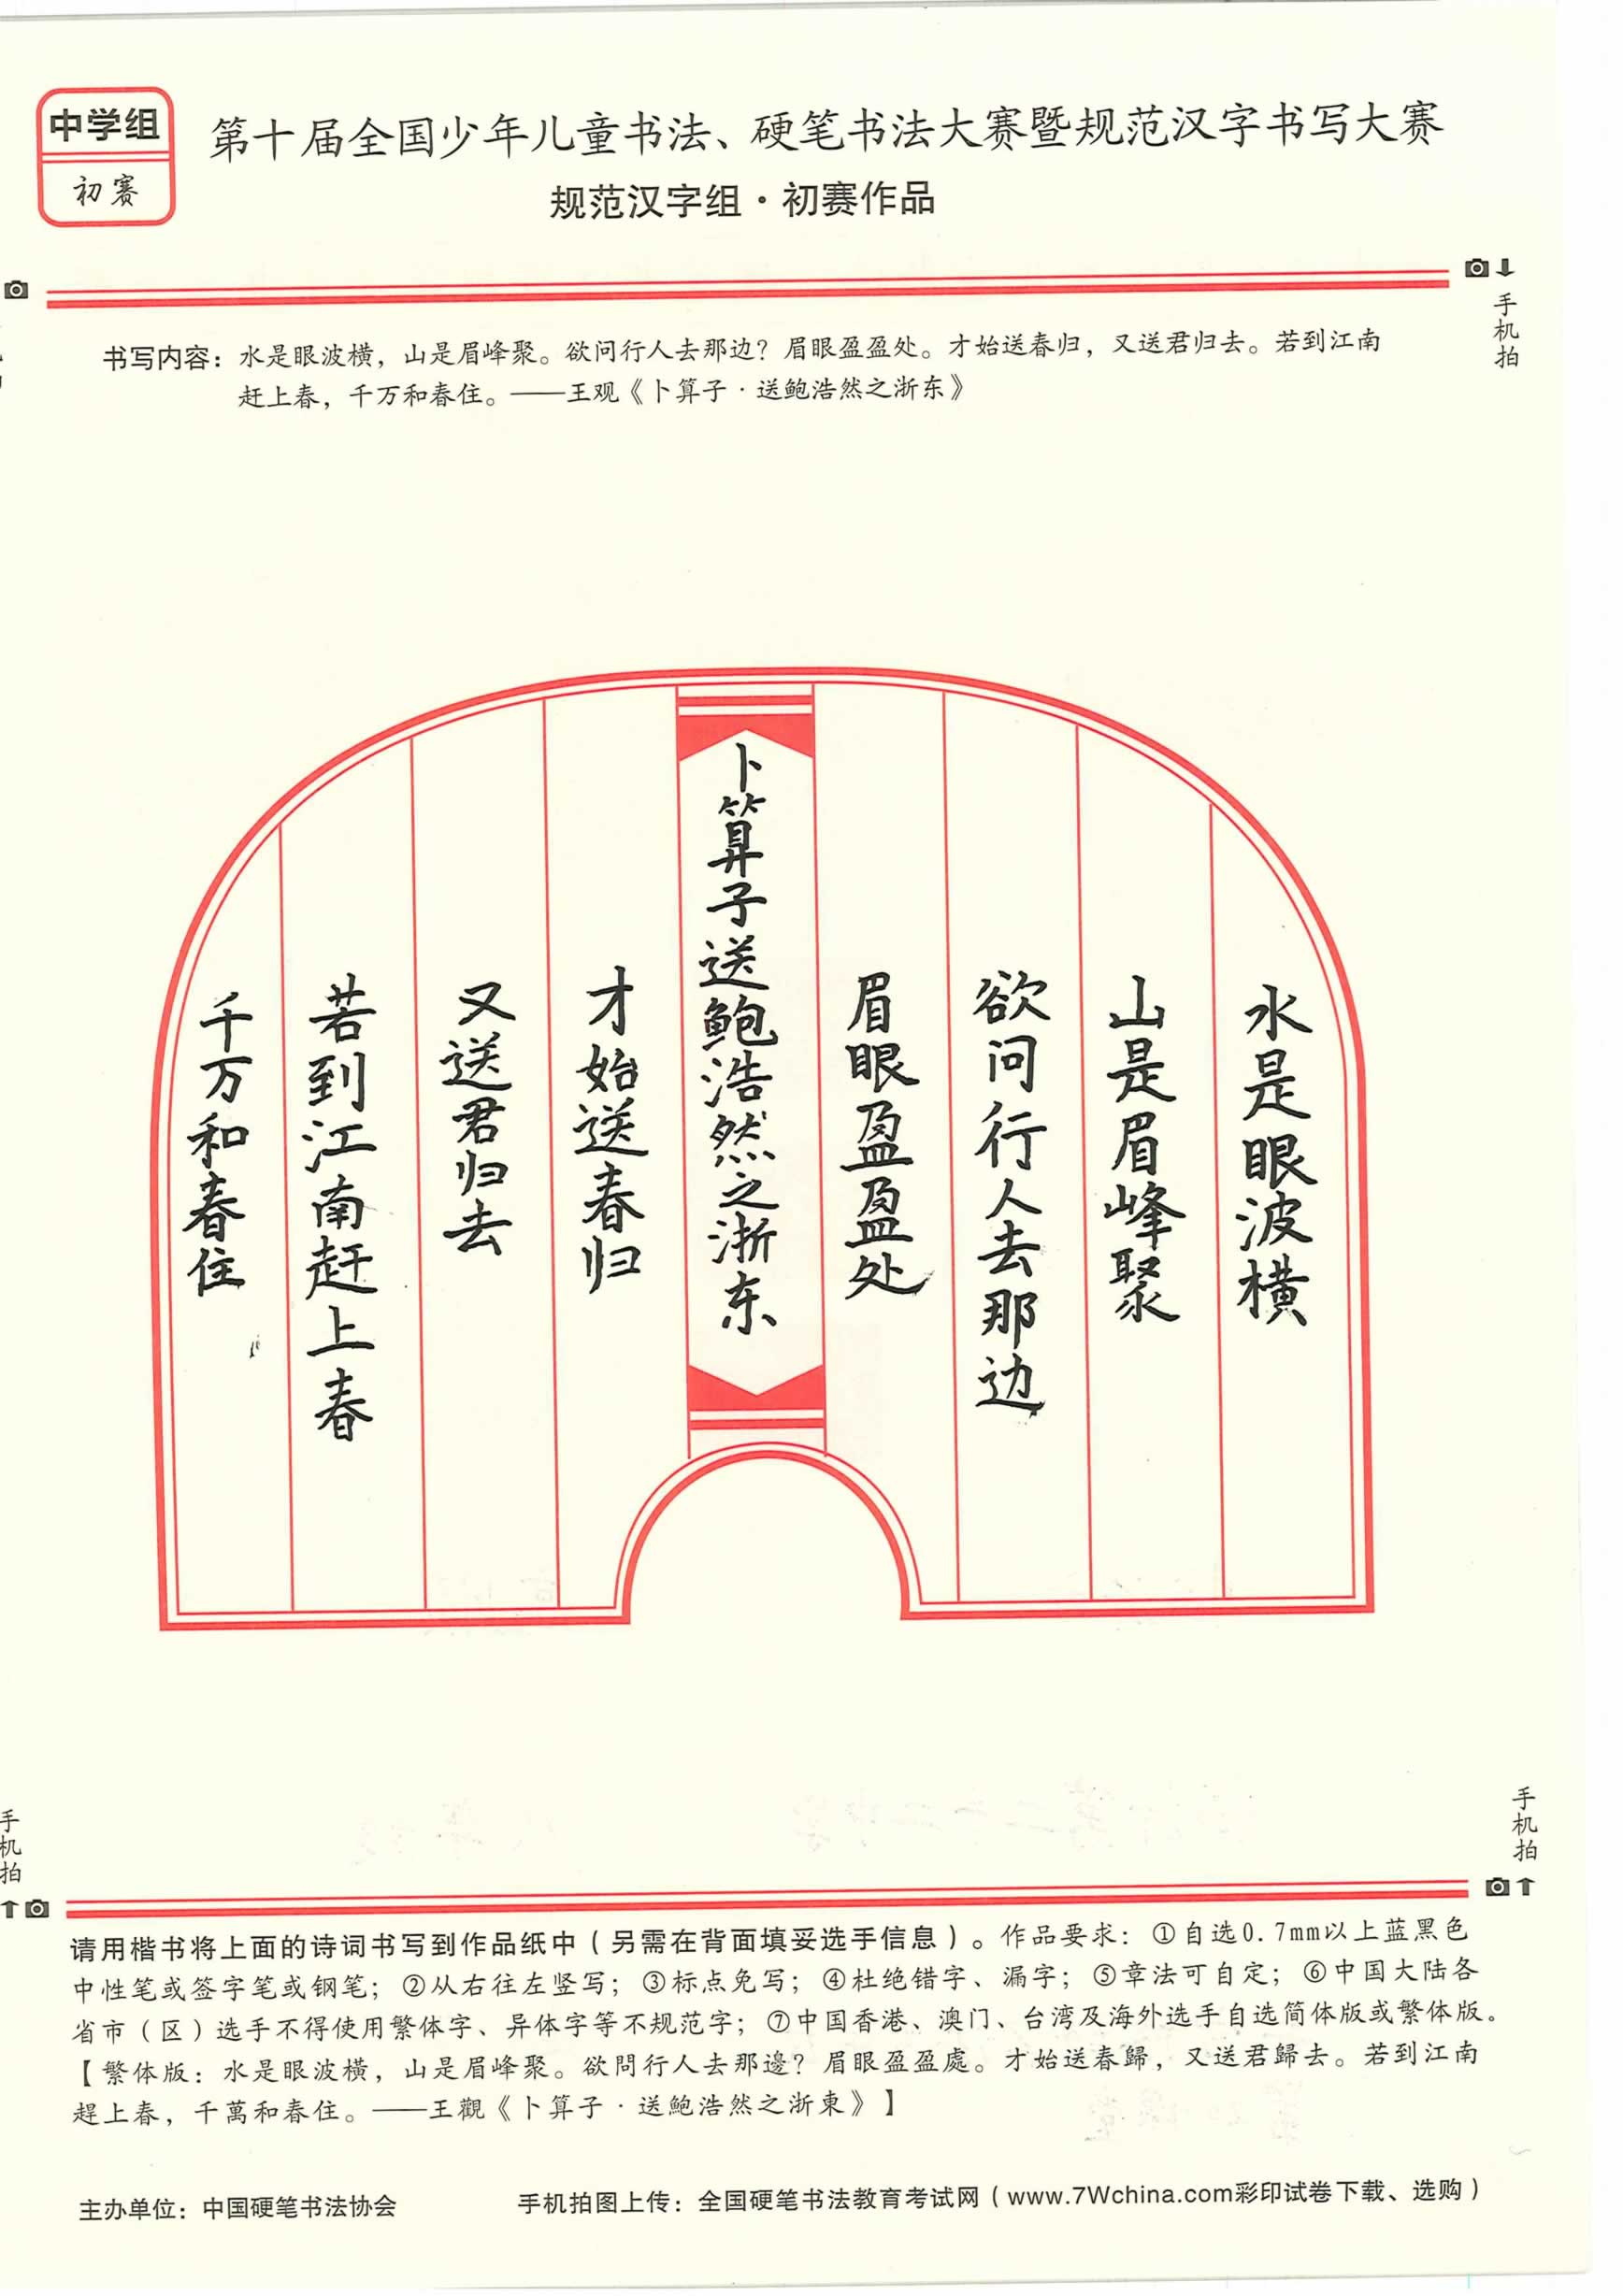 中学组
初赛
第十届全国少年儿童书法、硬笔书法大赛暨规范汉字书写大赛
规范汉字组·初赛作品
手机拍
书写内容：水是眼波横，山是眉峰聚。欲问行人去那边？眉眼盈盈处。才始送春归，又送君归去。若到江南
赶上春，千万和春住。——王观《卜算子·送鲍浩然之浙东》
水是眼波横
山是眉峰聚
欲问行人去那边
眉眼盈盈处
卜算子送鲍浩然之浙东
才始送春归
又送君归去
若到江南赶上春
千万和春住
手机拍
手机拍
请用楷书将上面的诗词书写到作品纸中（另需在背面填妥选手信息）。作品要求：①自选0.7mm以上蓝黑色
中性笔或签字笔或钢笔；②从右往左竖写；③标点免写；④杜绝错字、漏字；⑤章法可自定；⑥中国大陆各
省市（区）选手不得使用繁体字、异体字等不规范字；⑦中国香港、澳门、台湾及海外选手自选简体版或繁体版。
【繁体版：水是眼波橫，山是眉峰聚。欲問行人去那邊？眉眼盈盈處。才始送春歸，又送君歸去。若到江南
趕上春，千萬和春住。——王觀《卜算子·送鮑浩然之浙東》】
主办单位：中国硬笔书法协会
手机拍图上传：全国硬笔书法教育考试网（www.7Wchina.com彩印试卷下载、选购）